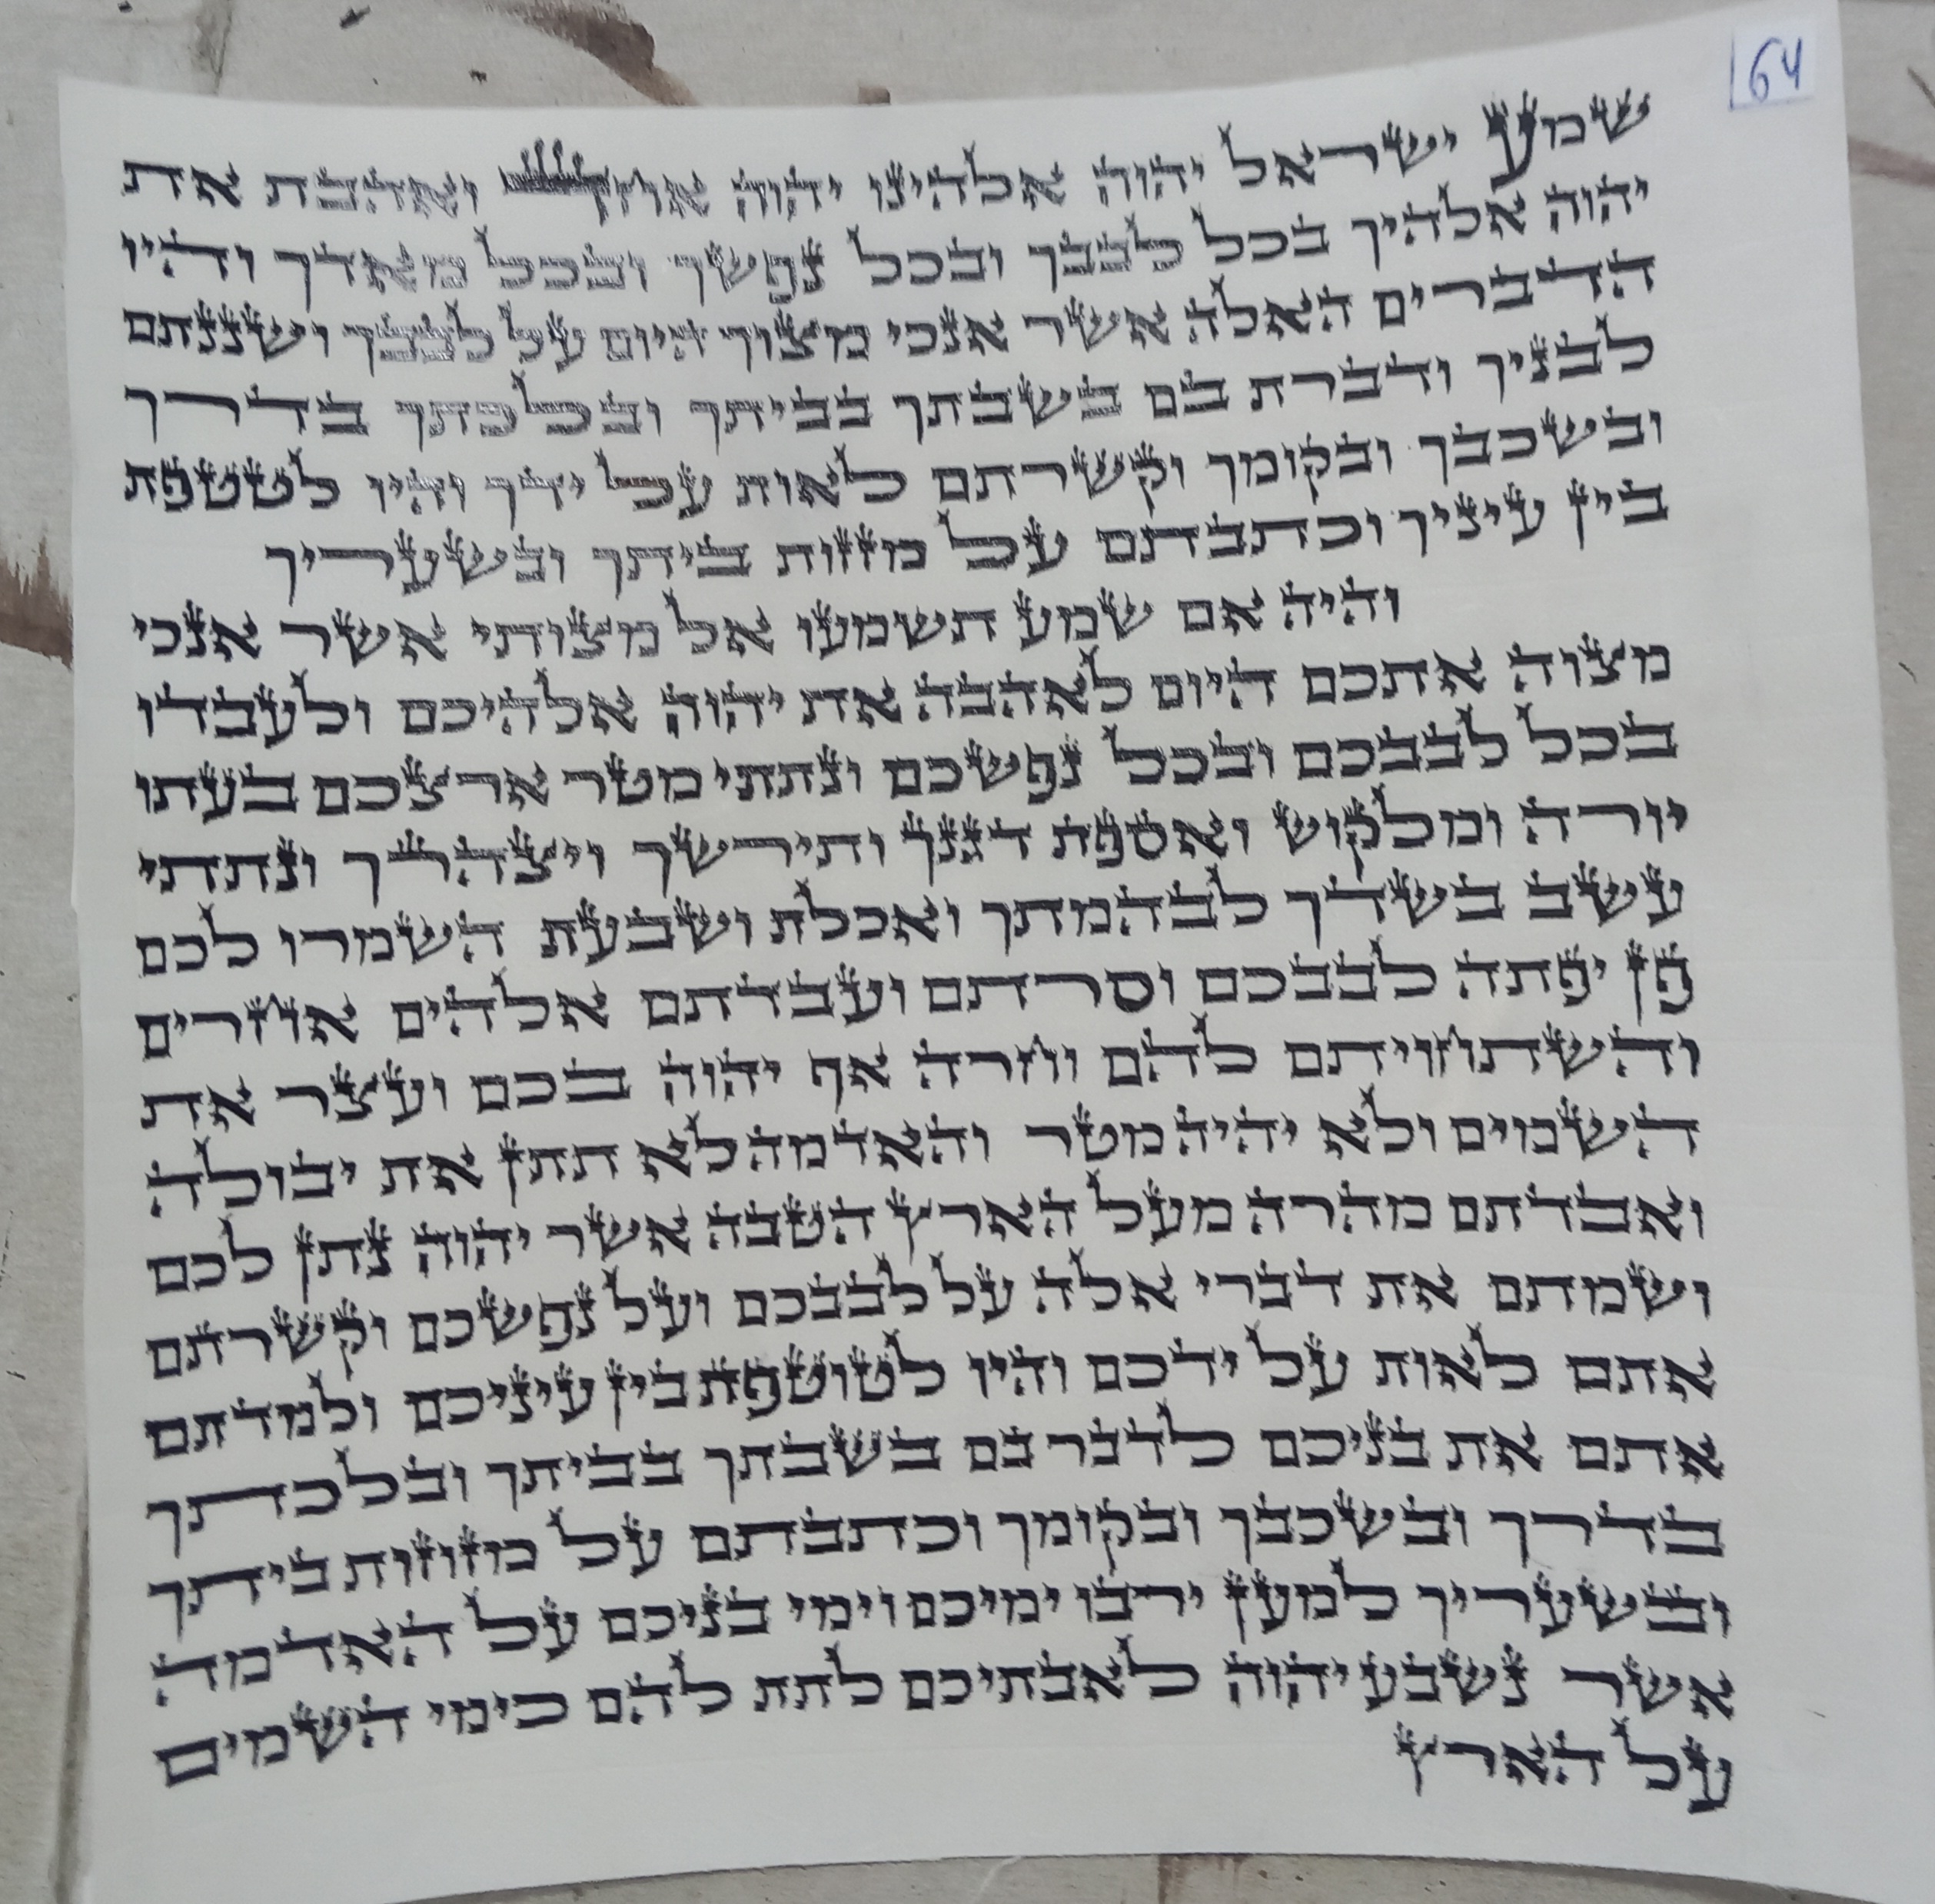 64
שמע ישראל יהוה אלהינו יהוה אחד ואהבת את
יהוה אלהיך בכל לבבך ובכל נפשך ובכל מאדך והיו
הדברים האלה אשר אנכי מצוך היום על לבבך ושננתם
לבניך ודברת בם בשבתך בביתך ובלכתך בדרך
ובשכבך ובקומך וקשרתם לאות על ידך והיו לטטפת
בין עיניך וכתבתם על מזזות ביתך ובשעריך
והיה אם שמע תשמעו אל מצותי אשר אנכי
מצוה אתכם היום לאהבה את יהוה אלהיכם ולעבדו
בכל לבבכם ובכל נפשכם ונתתי מטר ארצכם בעתו
יורה ומלקוש ואספת דגנך ותירשך ויצהרך ונתתי
עשב בשדך לבהמתך ואכלת ושבעת השמרו לכם
פן יפתה לבבכם וסרתם ועבדתם אלהים אחרים
והשתחויתם להם וחרה אף יהוה בכם ועצר את
השמים ולא יהיה מטר והאדמה לא תתן את יבולה
ואבדתם מהרה מעל הארץ הטבה אשר יהוה נתן לכם
ושמתם את דברי אלה על לבבכם ועל נפשכם וקשרתם
אתם לאות על ידכם והיו לטוטפת בין עיניכם ולמדתם
אתם את בניכם לדבר בם בשבתך בביתך ובלכתך
בדרך ובשכבך ובקומך וכתבתם על מזוזות ביתך
ובשעריך למען ירבו ימיכם וימי בניכם על האדמה
אשר נשבע יהוה לאבתיכם לתת להם כימי השמים
על הארץ